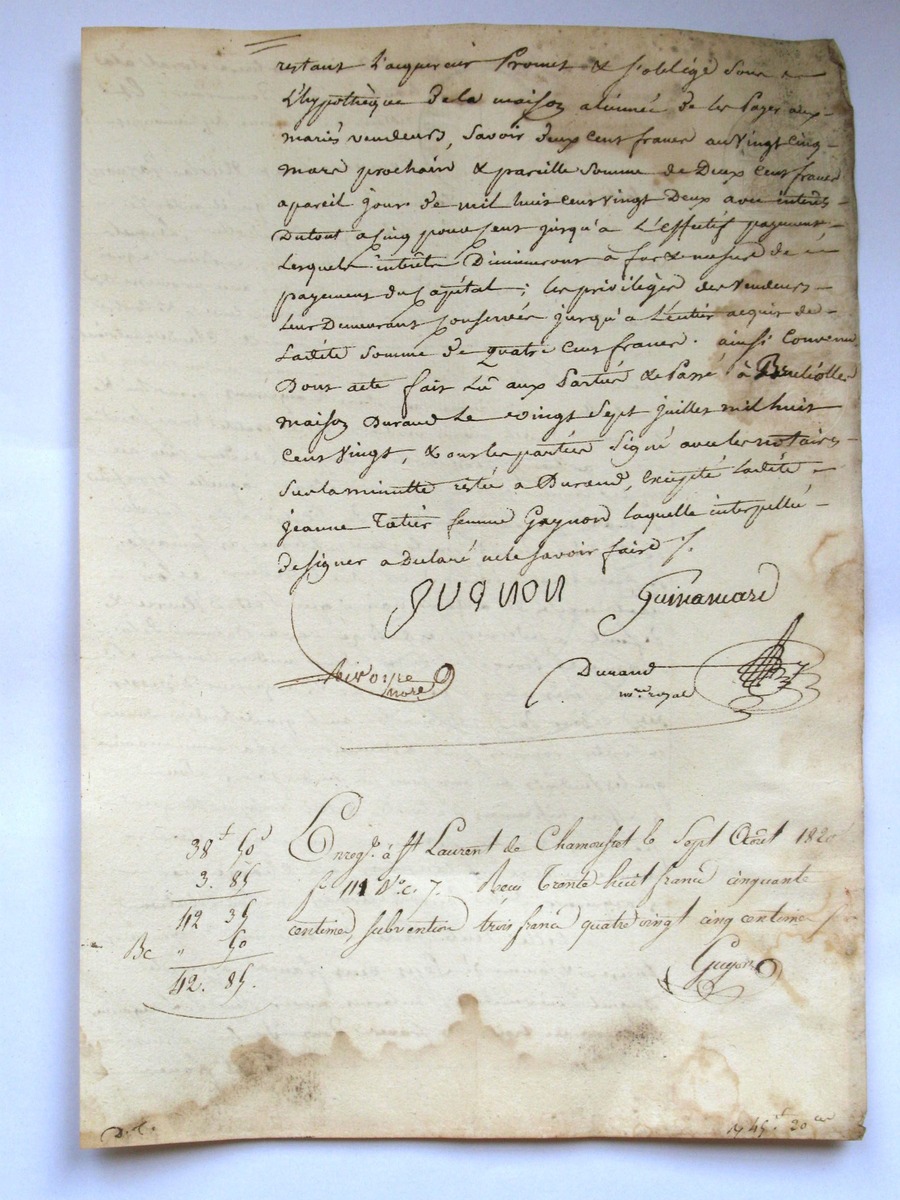 restant L'acquereur Promet & s'oblige sous
L'hypothèque de la maison alienneé de les Payer aux
mariés vendeurs, Savoir deux cent francs au Vingt Cinq
mars prochain & pareille Somme de Deux Cent francs
a pareil jour de mil huit cent vingt Deux avec interets
Dutout a Cinq pour Cent jusqu'a L'effectif payement
Lesquels interets Diminueront à for & mesure de
payement du Capital ; les privilèges des Vendeurs
Leur Demeurant Conservés jusqu'a L'entier acquit de
Ladite Somme de quatre Cent francs. ainsi Convenu
Dont acte fait Lû aux Parties & Passé à
maison Durand Le vingt Sept juillet mil huit
Cent Vingt, & ont les parties Signé avec les notaires
Sur la minutte restée a Durand, Excepté Ladite
jeanne femme Gagnon laquelle interpellée
de signer a Declaré ne le savoir faire
Durand
nre. royal
38 f 50
3. 85
42 35
Bc " 50
42. 85.
Enregé. à St Laurent de Chamousset le Sept Août 1820
fo 111 Vo c. 7. Reçu Trente-huit francs cinquante
centimes, subvention trois francs quatre vingt cinq centimes
Guyon